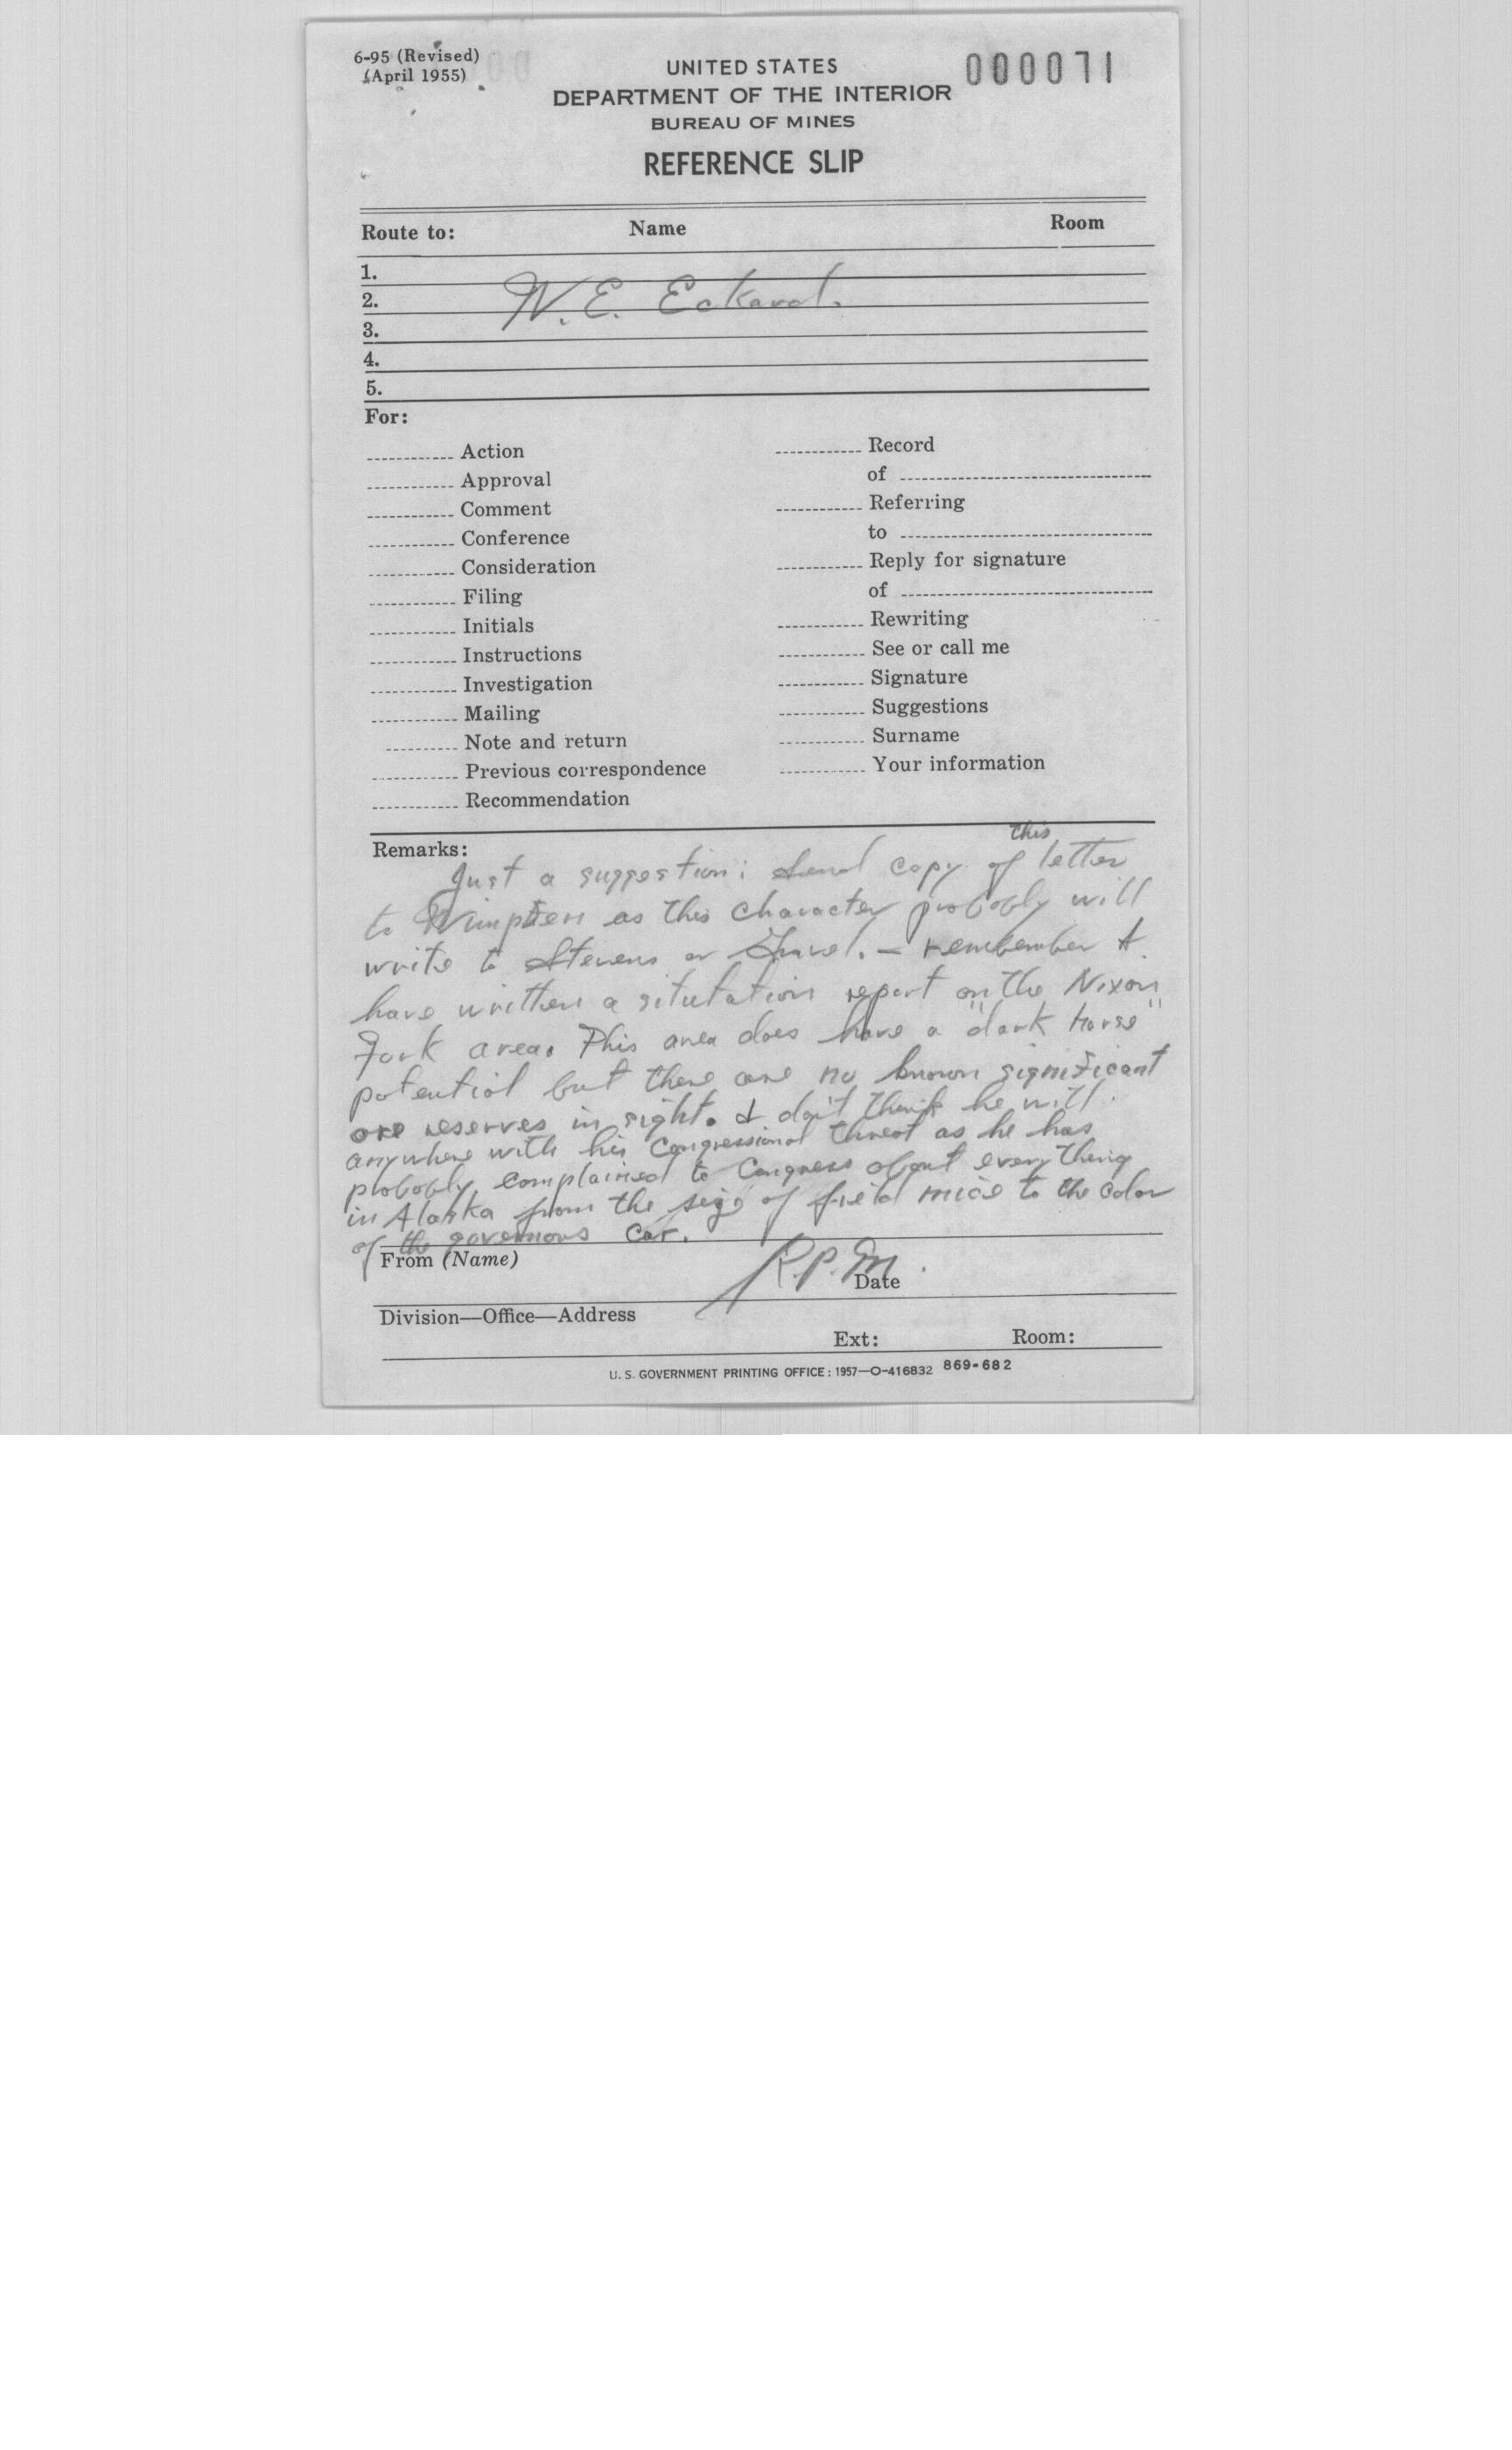 6-95 (Revised)
(April 1955)
000071
UNITED STATES
DEPARTMENT OF THE INTERIOR
BUREAU OF MINES
REFERENCE SLIP
Route to: Name Room
1.
2. W. E. Eckard.
3.
4.
5.
For:
Action
Approval
Comment
Conference
Consideration
Filing
Initials
Instructions
Investigation
Mailing
Note and return
Previous correspondence
Recommendation
Record
of
Referring
to
Reply for signature
of
Rewriting
See or call me
Signature
Suggestions
Surname
Your information
Remarks:
this
Just a suggestion: Send copy of letter
to as this character probobly will
write to Stevens or Gravel. – remember I
have written a situtation report on the Nixon
Fork area. This area does have a "dark horse"
potential but there are no known significant
ore reserves in sight. I don't think he will
anywhere with his Congressional threat as he has
probobly complained to Congress about everything
in Alaska from the size of field mice to the color
of the governors car.
From (Name) R.P.M. Date
Division—Office—Address
Ext: Room:
U. S. GOVERNMENT PRINTING OFFICE : 1957—O-416832 869-682